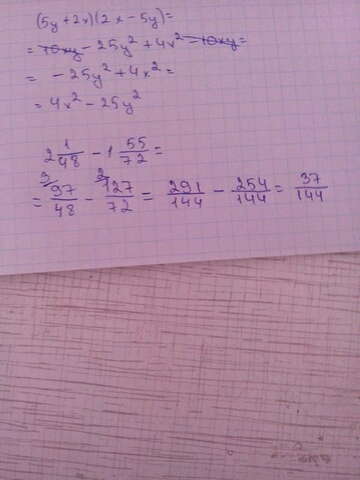 (5y+2x)(2x-5y)=
= 10xy - 25y² + 4x² - 10xy =
= - 25y² + 4x² =
= 4x² - 25y²
2 1/48 - 1 55/72 =
= 97/48 ³⁄ - 127/72 ²⁄ = 291/144 - 254/144 = 37/144